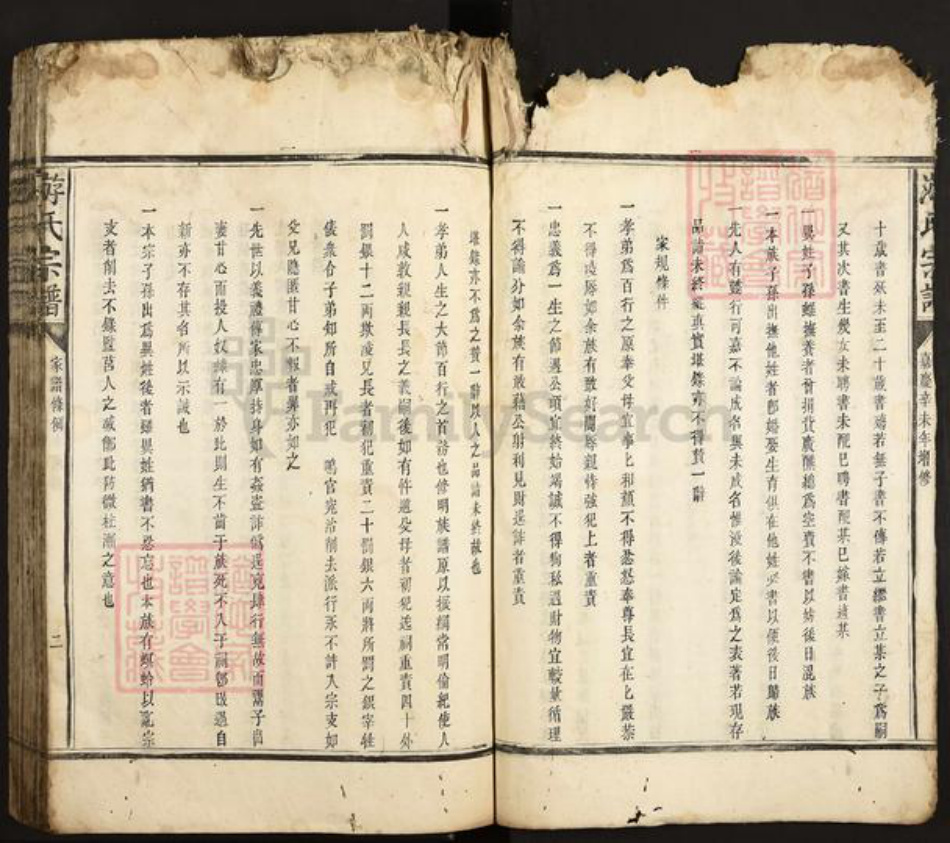 游氏宗譜
嘉慶辛未年增修
十歲書殀未至二十歲書殤若無子書不傳若立繼書立某之子爲嗣
又其次書生幾女未聘書未配已聘書配某已嫁書適某
一異姓子孫雖撫養者曾捐貲廣醮總爲空費不書以妨後日混族
一本族子孫出撫他姓者卽婚娶生育俱在他姓必書以便後日歸族
一先人有懿行可嘉不論成名與未成名惟沒後論定爲之表著若現存
品詣未終縱眞實堪錄亦不得贊一辭
家規條件
一孝弟爲百行之原奉父母宜事上和顏不得忿怒奉尊長宜在上嚴恭
不得凌辱如余族有敢好鬭辱親恃強犯上者重責
一忠義爲一生之節遇公項宜終始竭誠不得狥私過財物宜較量循理
不得論分如余族有敢藉公射利見財逞詐者重責
堪錄亦不爲之贊一辭以人之品詣未終故也
一孝弟人生之大節百行之首務也修明族譜原以振綱常明倫紀使人
人咸敦親親長長之義嗣後如有忤逆父母者初犯送祠重責四十外
罰銀十二兩欺凌兄長者初犯重責二十罰銀六兩將所罰之銀宰牲
儀衆合子弟知所自戒再犯 鳴官究治削去派行永不許入宗支如
父兄隱匿甘心不報者與亦如之
一先世以義禮傳家忠厚持身如有姦盜詐僞逞兇肆行無故而鬻子與
妻甘心而投人奴隸有一於此則生不齒于族死不入于祠卽改過自
新亦不存其名所以示誡也
一本宗子孫出爲異姓後者雖異姓猶書不忍忘也本族有螟蛉以亂宗
支者削去不錄曁莒人之滅鄫此防微杜漸之意也
游氏宗譜
家譜條例
二
FamilySearch